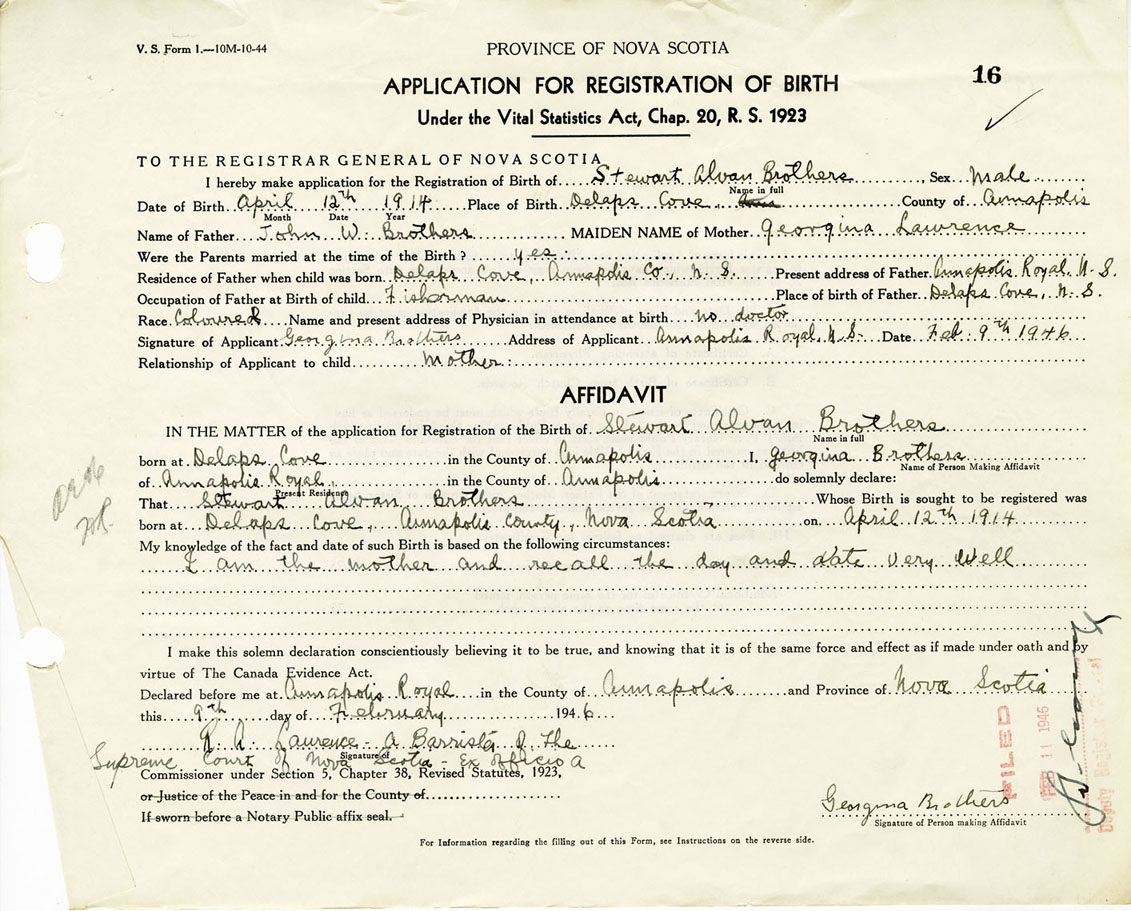 V. S. Form 1.—10M-10-44
PROVINCE OF NOVA SCOTIA
16
APPLICATION FOR REGISTRATION OF BIRTH
Under the Vital Statistics Act, Chap. 20, R. S. 1923
TO THE REGISTRAR GENERAL OF NOVA SCOTIA
I hereby make application for the Registration of Birth of Stewart Alvan Brothers, Sex Male
Name in full
Date of Birth April 12th 1914 Place of Birth Delaps Cove County of Annapolis
Month Date Year
Name of Father John W. Brothers MAIDEN NAME of Mother Georgina Lawrence
Were the Parents married at the time of the Birth? yes
Residence of Father when child was born Delaps Cove, Annapolis Co., N. S. Present address of Father Annapolis Royal, N. S.
Occupation of Father at Birth of child Fisherman Place of birth of Father Delaps Cove, N. S.
Race Coloured Name and present address of Physician in attendance at birth no doctor
Signature of Applicant Georgina Brothers Address of Applicant Annapolis Royal, N.S. Date Feb. 9th 1946
Relationship of Applicant to child Mother
AFFIDAVIT
IN THE MATTER of the application for Registration of the Birth of Stewart Alvan Brothers
Name in full
born at Delaps Cove in the County of Annapolis I, Georgina Brothers
Name of Person Making Affidavit
of Annapolis Royal in the County of Annapolis do solemnly declare:
Present Residence
That Stewart Alvan Brothers Whose Birth is sought to be registered was
born at Delaps Cove, Annapolis County, Nova Scotia on April 12th 1914
My knowledge of the fact and date of such Birth is based on the following circumstances:
I am the mother and recall the day and date very well
I make this solemn declaration conscientiously believing it to be true, and knowing that it is of the same force and effect as if made under oath and by
virtue of The Canada Evidence Act.
Declared before me at Annapolis Royal in the County of Annapolis and Province of Nova Scotia
this 9th day of February 1946
R. A. Laurence - A Barrister of the
Signature of
Supreme Court of Nova Scotia - Ex Officio A
Commissioner under Section 5, Chapter 38, Revised Statutes, 1923,
or Justice of the Peace in and for the County of
If sworn before a Notary Public affix seal.
Georgina Brothers
Signature of Person making Affidavit
For Information regarding the filling out of this Form, see Instructions on the reverse side.
FILED
FEB 11 1946
Deputy Registrar